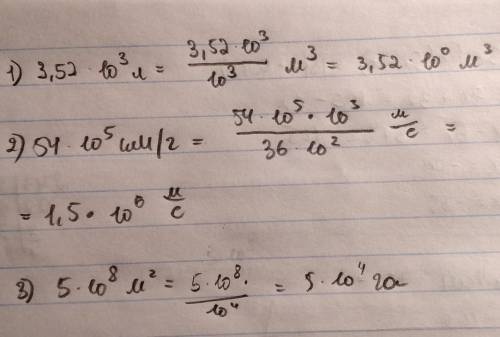 1) 3,52 · 10³ л = 3,52 · 10³ / 10³ м³ = 3,52 · 10⁰ м³
2) 54 · 10⁵ км/г = 54 · 10⁵ · 10³ / 36 · 10² м/с =
= 1,5 · 10⁶ м/с
3) 5 · 10⁸ м² = 5 · 10⁸ · / 10⁴ = 5 · 10⁴ га